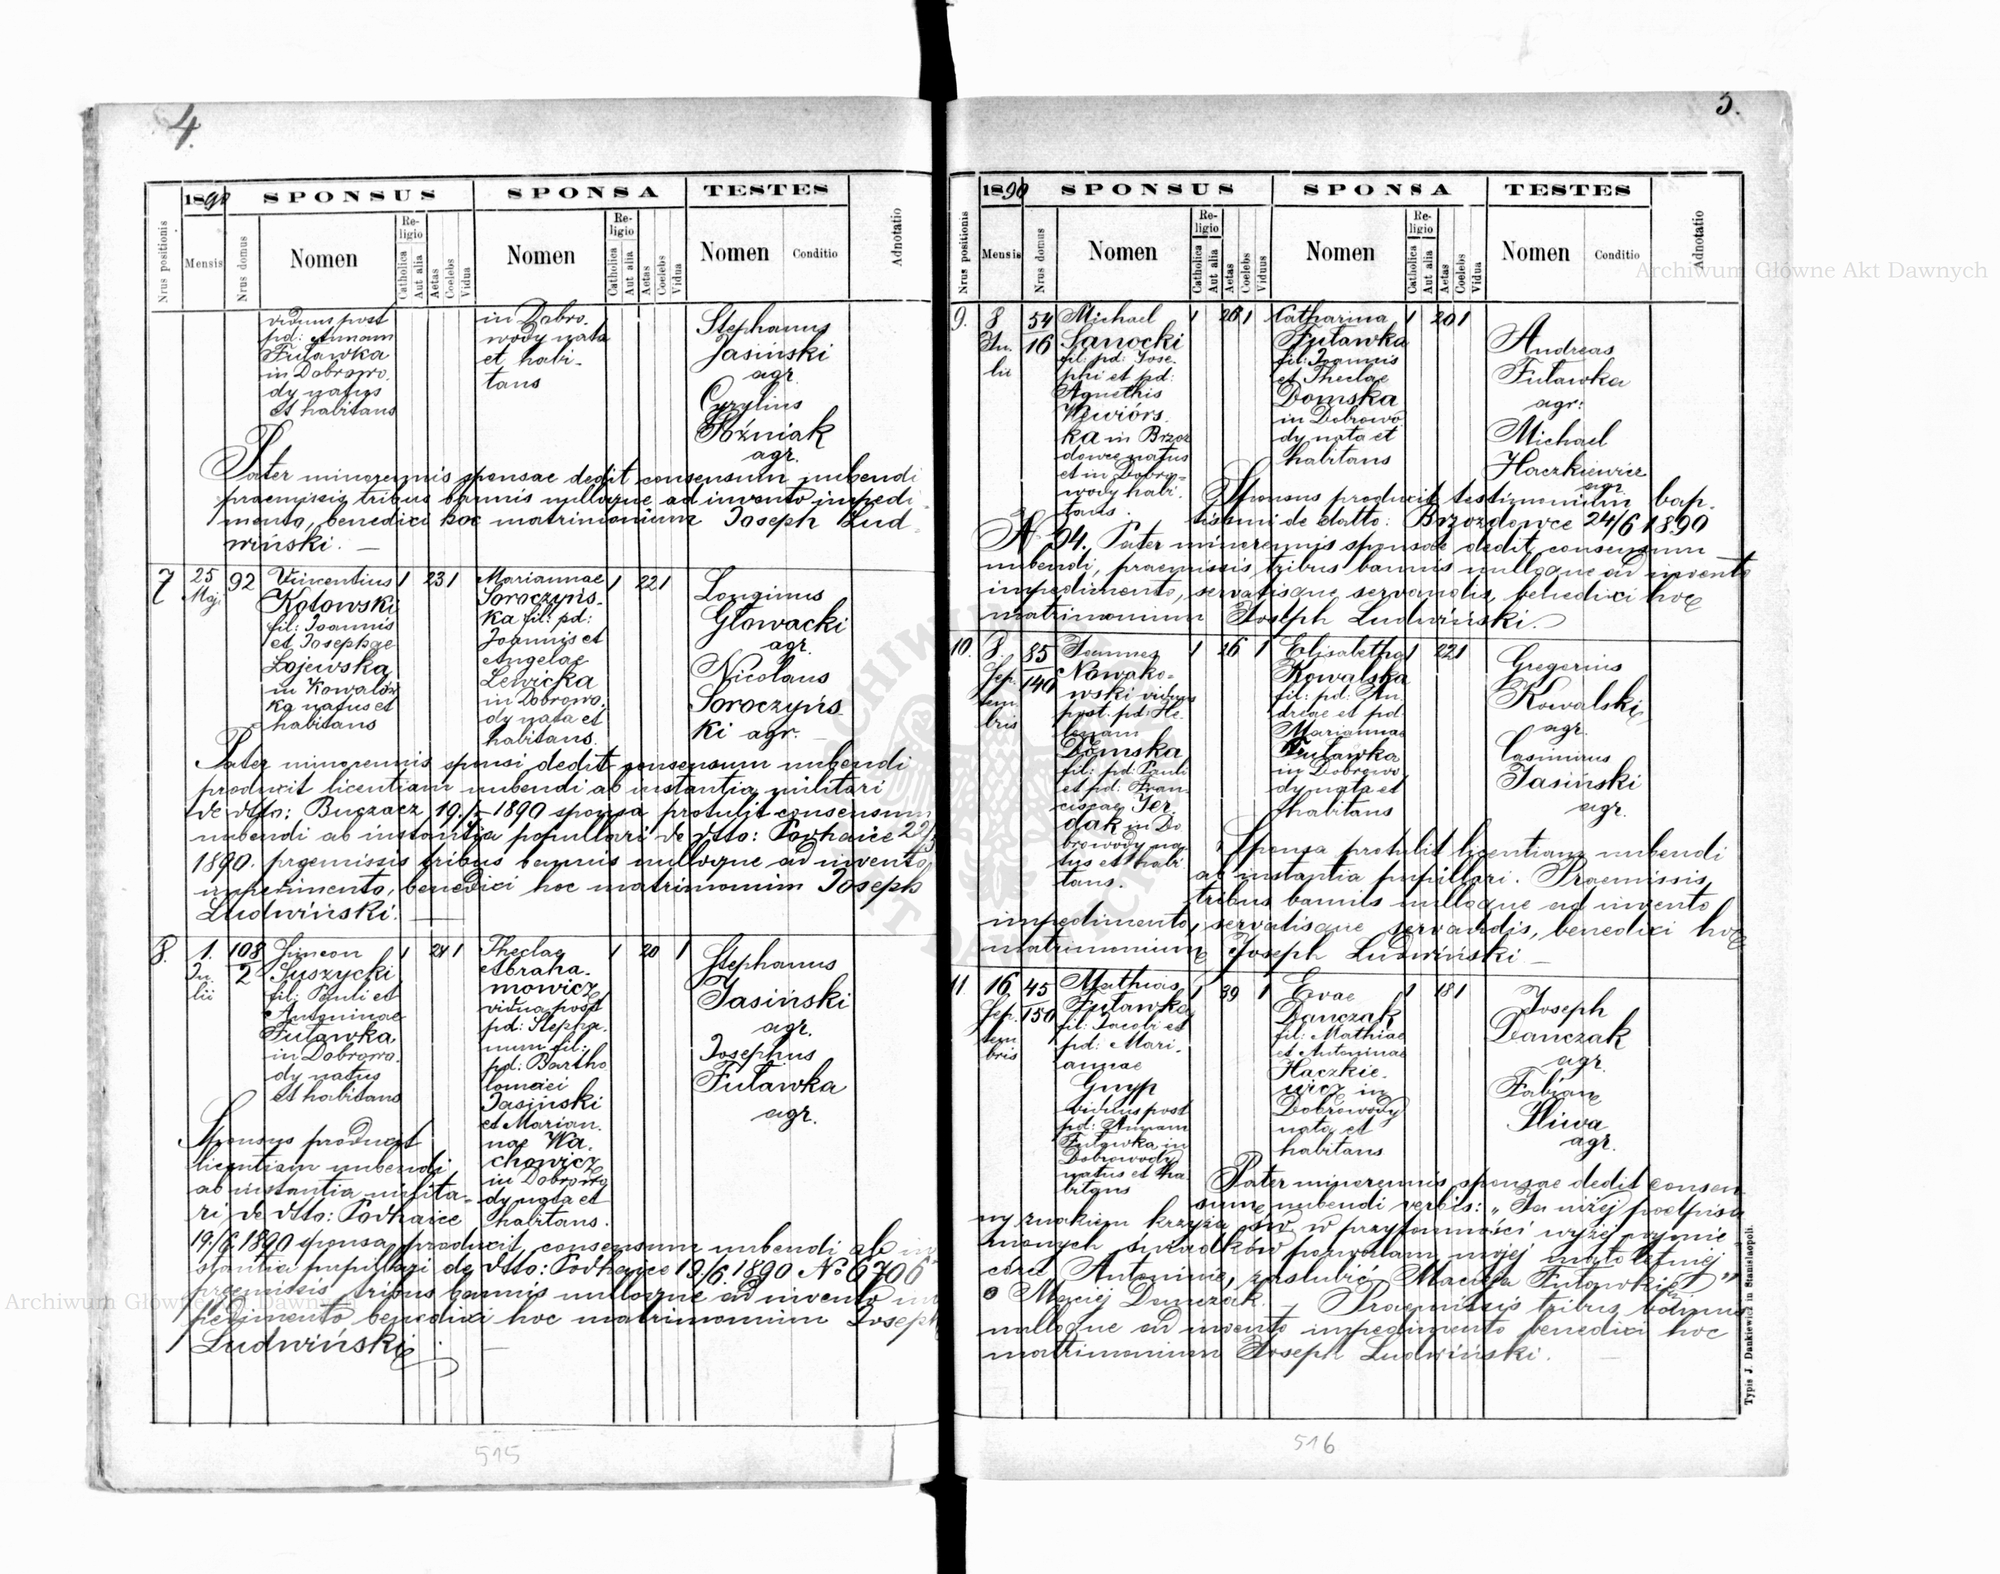 4.
1890 SPONSUS SPONSA TESTES
Nrus positionis
Mensis
Nrus domus
Nomen
Religio
Catholica
Aut alia
Aetas
Coelebs
Vidua
Nomen
Religio
Catholica
Aut alia
Aetas
Coelebs
Vidua
Nomen
Conditio
Adnotatio
viduus post
pd: Annam
Futawka
in Dobrowo.
dy natus
et habitans
in Dobro.
wody nata
et habi-
tans
Stephanus
Jasiński
agr.
Cyrylius
Woźniak
agr.
Pater minorennis sponsae dedit consensum nubendi
praemissis tribus bannis nulloque ad invento impedi
mento, benedixi hoc matrimonium Joseph Lud-
wiński. —
7 25 Maji 92
Vincentius 1 23 1
Kotowski
fil: Joannis
et Josephae
Łojewska
in Kowalów
ka natus et
habitans
Mariannae 1 22 1
Soroczyńs-
ka fil: pd:
Joannis et
Angelae
Lewicka
in Dobrowo.
dy nata et
habitans.
Longinus
Głowacki
agr.
Nicolaus
Soroczyńs-
ki agr.
Pater minorennis sponsi dedit consensum nubendi
produxit licentiam nubendi ab instantia militari
de dtto: Buczacz 19. 1890 sponsa protulit consensum
nubendi ab instantia pupillari de dtto: Podhajce 22/5
1890. praemissis tribus bannis nulloque ad invento
impedimento, benedixi hoc matrimonium Joseph
Ludwiński. —
8. 1. Julii 108 2
Simeon 1 24 1
Suszycki
fil: Pauli et
Antoninae
Futawka
in Dobrowo.
dy natus
et habitans
Theclae 1 20 1
Abraha-
mowicz
vidua post
pd: Stepha.
num fil:
pd: Bartho
lomaei
Jasiński
et Marian.
nae Wa.
chowicz
in Dobrowo
dy nata et
habitans.
Stephanus
Jasiński
agr.
Josephus
Futawka
agr.
Sponsus produxit
licentiam nubendi
ab instantia milita-
ri de dtto: Podhajce
19/6 1890 sponsa produxit consensum nubendi ab in
stantia pupillari de dtto: Podhajce 19/6. 1890 No 6706
praemissis tribus bannis nulloque ad invento im
pedimento benedixi hoc matrimonium Joseph
Ludwiński
515
5.
1890 SPONSUS SPONSA TESTES
Nrus positionis
Mensis
Nrus domus
Nomen
Religio
Catholica
Aut alia
Aetas
Coelebs
Viduus
Nomen
Religio
Catholica
Aut alia
Aetas
Coelebs
Vidua
Nomen
Conditio
Adnotatio
9. 8 Julii 54 16
Michael 1 26 1
Sanocki
fil: pd: Jose-
phi et pd:
Agnethis
Wiwiórs.
ka in Brzoz
dowce natus
et in Dobro-
wody habi.
tans.
Catharina 1 20 1
Futawka
fil: Joannis
et Theclae
Domska
in Dobrowo
dy nata et
habitans
Andreas
Futawka
agr:
Michael
Haczkiewicz
agr
Sponsus produxit testimonium bap.
tissmi de datto: Brzozdowce 24/6 1890
N 94. Pater minorennis sponsae dedit consensum
nubendi, praemissis tribus bannis nulloque ad invento
impedimento, servatisque servandis, benedixi hoc
matrimonium Joseph Ludwiński.
10. 8. Septembris 85 140
Joannes 1 26 1
Nowako-
wski viduus
post. pd: He-
lenam
Domska
fil: pd: Pauli
et pd: Fran-
ciscae Jer
dak in Do
browody na
tus et habi
tans.
Elisabetha 1 22 1
Kowalska
fil: pd: An.
dreae et pd.
Mariannae
Futawka
in Dobrowo
dy nata et
habitans
Gregorius
Kowalski
agr.
Casimirus
Jasiński
agr.
Sponsa protulit licentiam nubendi
ab instantia pupillari. Praemissis
tribus bannis nulloque ad invento
impedimento, servatisque servandis, benedixi hoc
matrimonium Joseph Ludwiński —
11 16 Septembris 45 150
Mathias 1 39 1
Futawka
fil: Jacobi et
pd: Mari-
annae
Gnyp
viduus post
pd: Annam
Futawka in
Dobrowody
natus et ha
bitans
Evae 1 18 1
Danczak
fil: Mathiae
et Antoninae
Haczkie-
wicz in
Dobrowody
nata et
habitans
Joseph
Danczak
agr.
Fabian
Sliwa
agr.
Pater minorennis sponsae dedit consen
sum nubendi verbis: „Ja niżej podpisa
ny znakiem krzyża św. w przytomności wyżej wymie
nionych świadków pozwalam mojej małoletniej
córce Antoninie, zaslubić Macieja Futawkie"
Maciej Danczak. — Praemissis tribus bannis
nulloque ad invento impedimento benedixi hoc
matrimonium Joseph Ludwiński.
Typis J. Dankiewicz in Stanislaopoli.
516
Archiwum Główne Akt Dawnych
Archiwum Główne Akt Dawnych